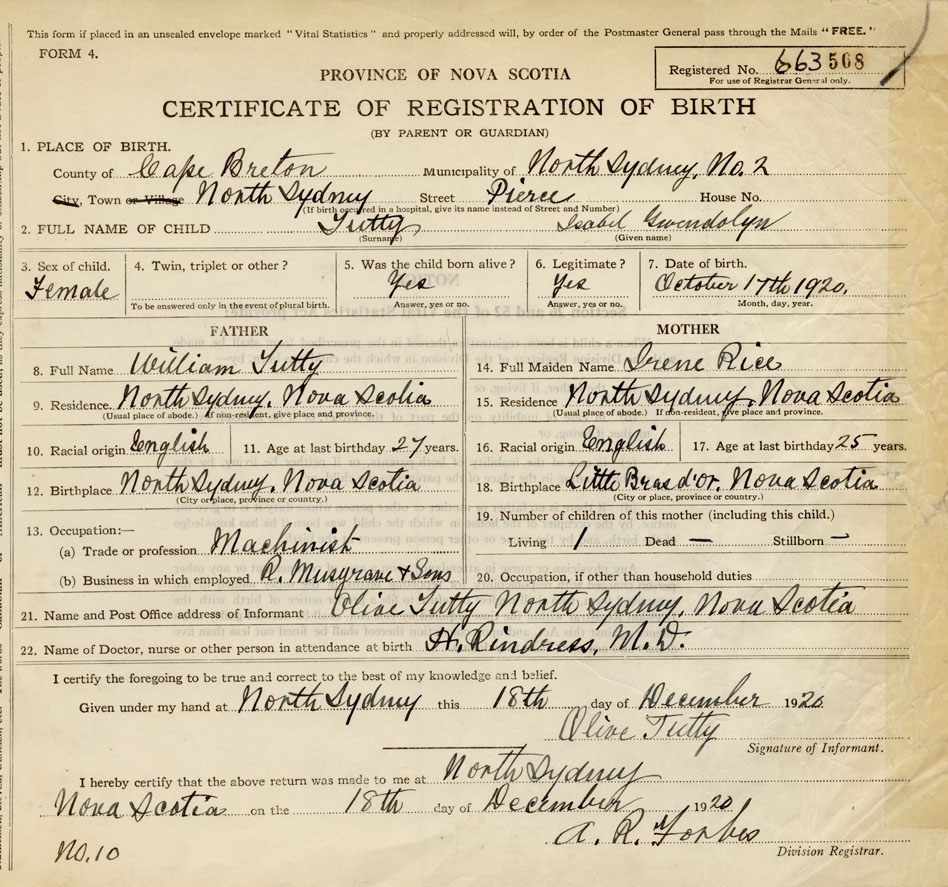 This form if placed in an unsealed envelope marked "Vital Statistics" and properly addressed will, by order of the Postmaster General pass through the Mails "FREE."
FORM 4.
Registered No. 663508
For use of Registrar General only.
PROVINCE OF NOVA SCOTIA
CERTIFICATE OF REGISTRATION OF BIRTH
(BY PARENT OR GUARDIAN)
1. PLACE OF BIRTH.
County of Cape Breton Municipality of North Sydney, No. 2
City, Town or Village North Sydney Street Pierce House No.
(If birth occurred in a hospital, give its name instead of Street and Number)
2. FULL NAME OF CHILD Tutty Isabel Gwendolyn
(Surname) (Given name)
3. Sex of child. 4. Twin, triplet or other? 5. Was the child born alive? 6. Legitimate? 7. Date of birth.
Female Yes Yes October 17th 1920.
To be answered only in the event of plural birth. Answer, yes or no. Answer, yes or no. Month, day, year.
FATHER
8. Full Name William Tutty
9. Residence. North Sydney, Nova Scotia
(Usual place of abode.) If non-resident, give place and province.
10. Racial origin English 11. Age at last birthday 27 years.
12. Birthplace North Sydney, Nova Scotia
(City or place, province or country.)
13. Occupation:—
(a) Trade or profession Machinist
(b) Business in which employed R. Musgrave & Sons
MOTHER
14. Full Maiden Name Irene Rice
15. Residence North Sydney, Nova Scotia
(Usual place of abode.) If non-resident, give place and province.
16. Racial origin English 17. Age at last birthday 25 years.
18. Birthplace Little Bras d'or, Nova Scotia
(City or place, province or country.)
19. Number of children of this mother (including this child.)
Living 1 Dead — Stillborn —
20. Occupation, if other than household duties
21. Name and Post Office address of Informant Olive Tutty North Sydney, Nova Scotia
22. Name of Doctor, nurse or other person in attendance at birth H. Rindress, M.D.
I certify the foregoing to be true and correct to the best of my knowledge and belief.
Given under my hand at North Sydney this 18th day of December 1920
Olive Tutty
Signature of Informant.
I hereby certify that the above return was made to me at North Sydney
Nova Scotia on the 18th day of December 1920
A. R. Forbes
Division Registrar.
No. 10